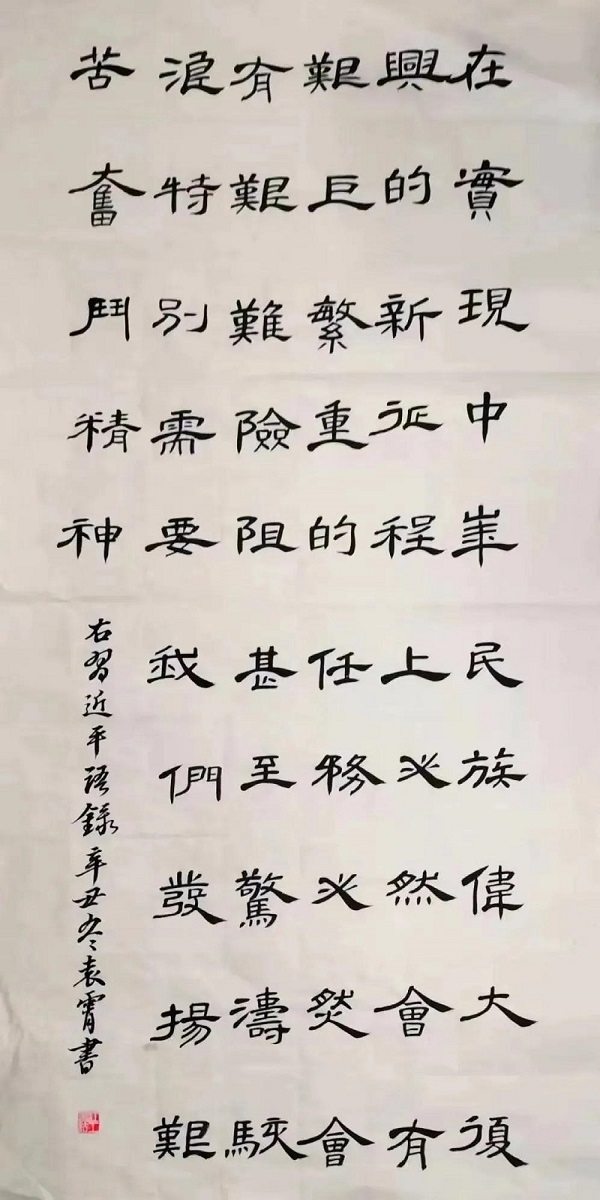 在實現中華民族偉大復
興的新征程上必然會有
艱巨繁重的任務必然會
有艱難險阻甚至驚濤駭
浪特別需要我們發揚艱
苦奮鬥精神
右習近平語錄辛丑冬袁霄書